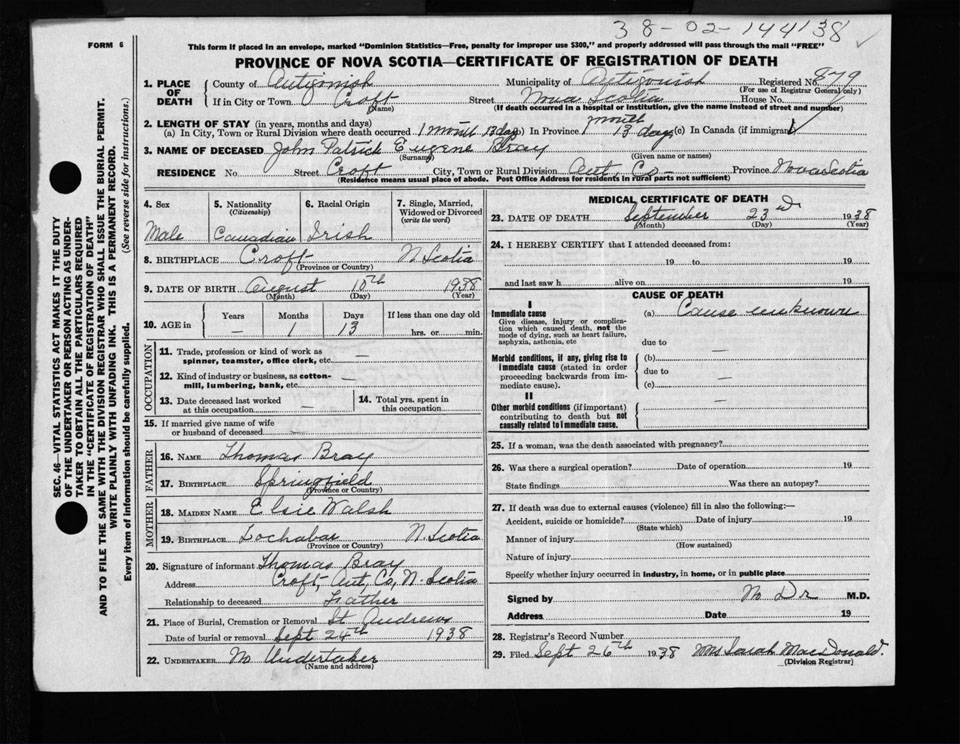 38-02-144138
FORM 6
This form if placed in an envelope, marked "Dominion Statistics—Free, penalty for improper use $300," and properly addressed will pass through the mail "FREE"
PROVINCE OF NOVA SCOTIA—CERTIFICATE OF REGISTRATION OF DEATH
1. PLACE OF DEATH
County of Antigonish Municipality of Antigonish Registered No. 879
(For use of Registrar General only)
If in City or Town Croft Street Nova Scotia House No.
(Name) (If death occurred in a hospital or institution, give the name instead of street and number)
2. LENGTH OF STAY (in years, months and days)
(a) In City, Town or Rural Division where death occurred 1 month 13 days (b) In Province 1 month 13 days (c) In Canada (if immigrant)
3. NAME OF DECEASED John Patrick Eugene Bray
(Surname) (Given name or names)
RESIDENCE No. Street Croft City, Town or Rural Division Ant. Co- Province Nova Scotia
(Residence means usual place of abode. Post Office Address for residents in rural parts not sufficient)
4. Sex 5. Nationality (Citizenship) 6. Racial Origin 7. Single, Married, Widowed or Divorced (write the word)
Male Canadian Irish
8. BIRTHPLACE Croft N. Scotia
(Province or Country)
9. DATE OF BIRTH August 10th 1938
(Month) (Day) (Year)
10. AGE in Years Months Days If less than one day old
— 1 13 hrs. or min.
OCCUPATION
11. Trade, profession or kind of work as spinner, teamster, office clerk, etc. —
12. Kind of industry or business, as cotton-mill, lumbering, bank, etc. —
13. Date deceased last worked at this occupation — 14. Total yrs. spent in this occupation
15. If married give name of wife or husband of deceased
FATHER
16. NAME Thomas Bray
17. BIRTHPLACE Springfield
(Province or Country)
MOTHER
18. MAIDEN NAME Elsie Walsh
19. BIRTHPLACE Lochabar N. Scotia
(Province or Country)
20. Signature of informant Thomas Bray
Address Croft, Ant. Co, N. Scotia
Relationship to deceased Father
21. Place of Burial, Cremation or Removal St Andrews
Date of burial or removal Sept 24th 1938
22. UNDERTAKER No Undertaker
(Name and address)
MEDICAL CERTIFICATE OF DEATH
23. DATE OF DEATH September 23rd 1938
(Month) (Day) (Year)
24. I HEREBY CERTIFY that I attended deceased from:
19 to 19
and last saw h alive on 19
CAUSE OF DEATH
I
Immediate cause (a) Cause unknown
Give disease, injury or complication which caused death, not the mode of dying, such as heart failure, asphyxia, asthenia, etc
due to —
Morbid conditions, if any, giving rise to immediate cause (stated in order proceeding backwards from immediate cause).
(b)
due to —
(c)
II
Other morbid conditions (if important) contributing to death but not causally related to immediate cause.
—
25. If a woman, was the death associated with pregnancy?
26. Was there a surgical operation? Date of operation 19
State findings Was there an autopsy?
27. If death was due to external causes (violence) fill in also the following:—
Accident, suicide or homicide? Date of injury 19
(State which)
Manner of injury
(How sustained)
Nature of injury
Specify whether injury occurred in industry, in home, or in public place
Signed by No Dr M.D.
Address Date 19
28. Registrar's Record Number
29. Filed Sept 26th 1938 Mrs Sarah MacDonald.
(Division Registrar)
SEC. 46—VITAL STATISTICS ACT MAKES IT THE DUTY
OF THE UNDERTAKER OR PERSON ACTING AS UNDER-
TAKER TO OBTAIN ALL THE PARTICULARS REQUIRED
IN THE "CERTIFICATE OF REGISTRATION OF DEATH"
AND TO FILE THE SAME WITH THE DIVISION REGISTRAR WHO SHALL ISSUE THE BURIAL PERMIT.
WRITE PLAINLY WITH UNFADING INK. THIS IS A PERMANENT RECORD.
Every item of information should be carefully supplied. (See reverse side for instructions.)